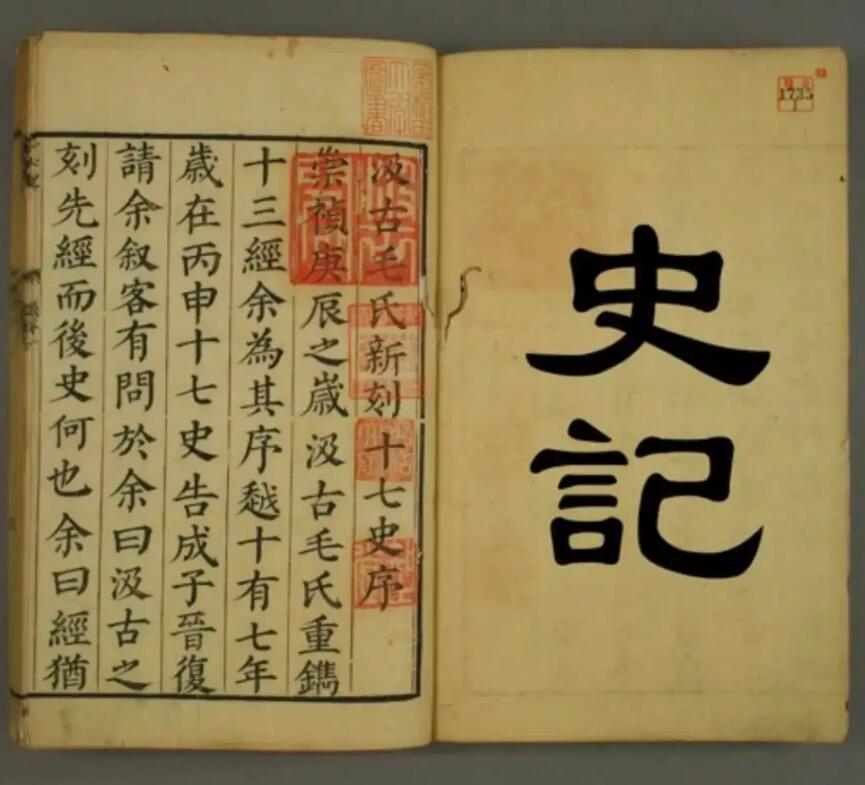 史記
汲古毛氏新刻十七史序
崇禎庚辰之歲汲古毛氏重鐫
十三經余為其序越十有七年
歲在丙申十七史告成子晉復
請余叙客有問於余曰汲古之
刻先經而後史何也余曰經猶
1735
1